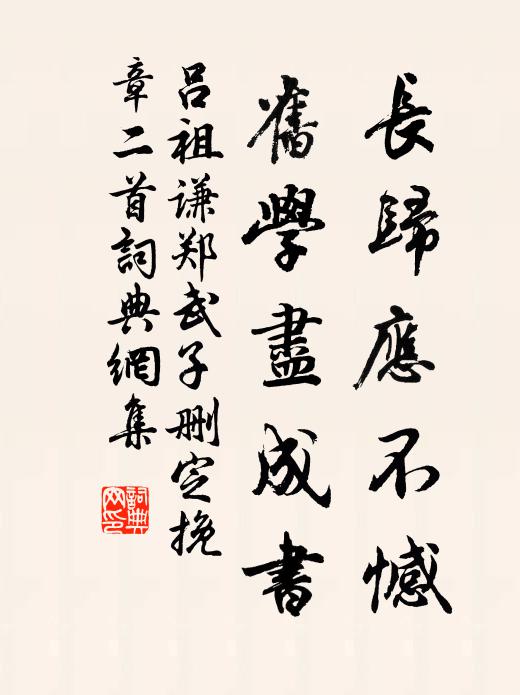 長歸應不憾
舊學盡成書
吕祖谦郑武子删定挽
章二首詞典網集
詞典
网印